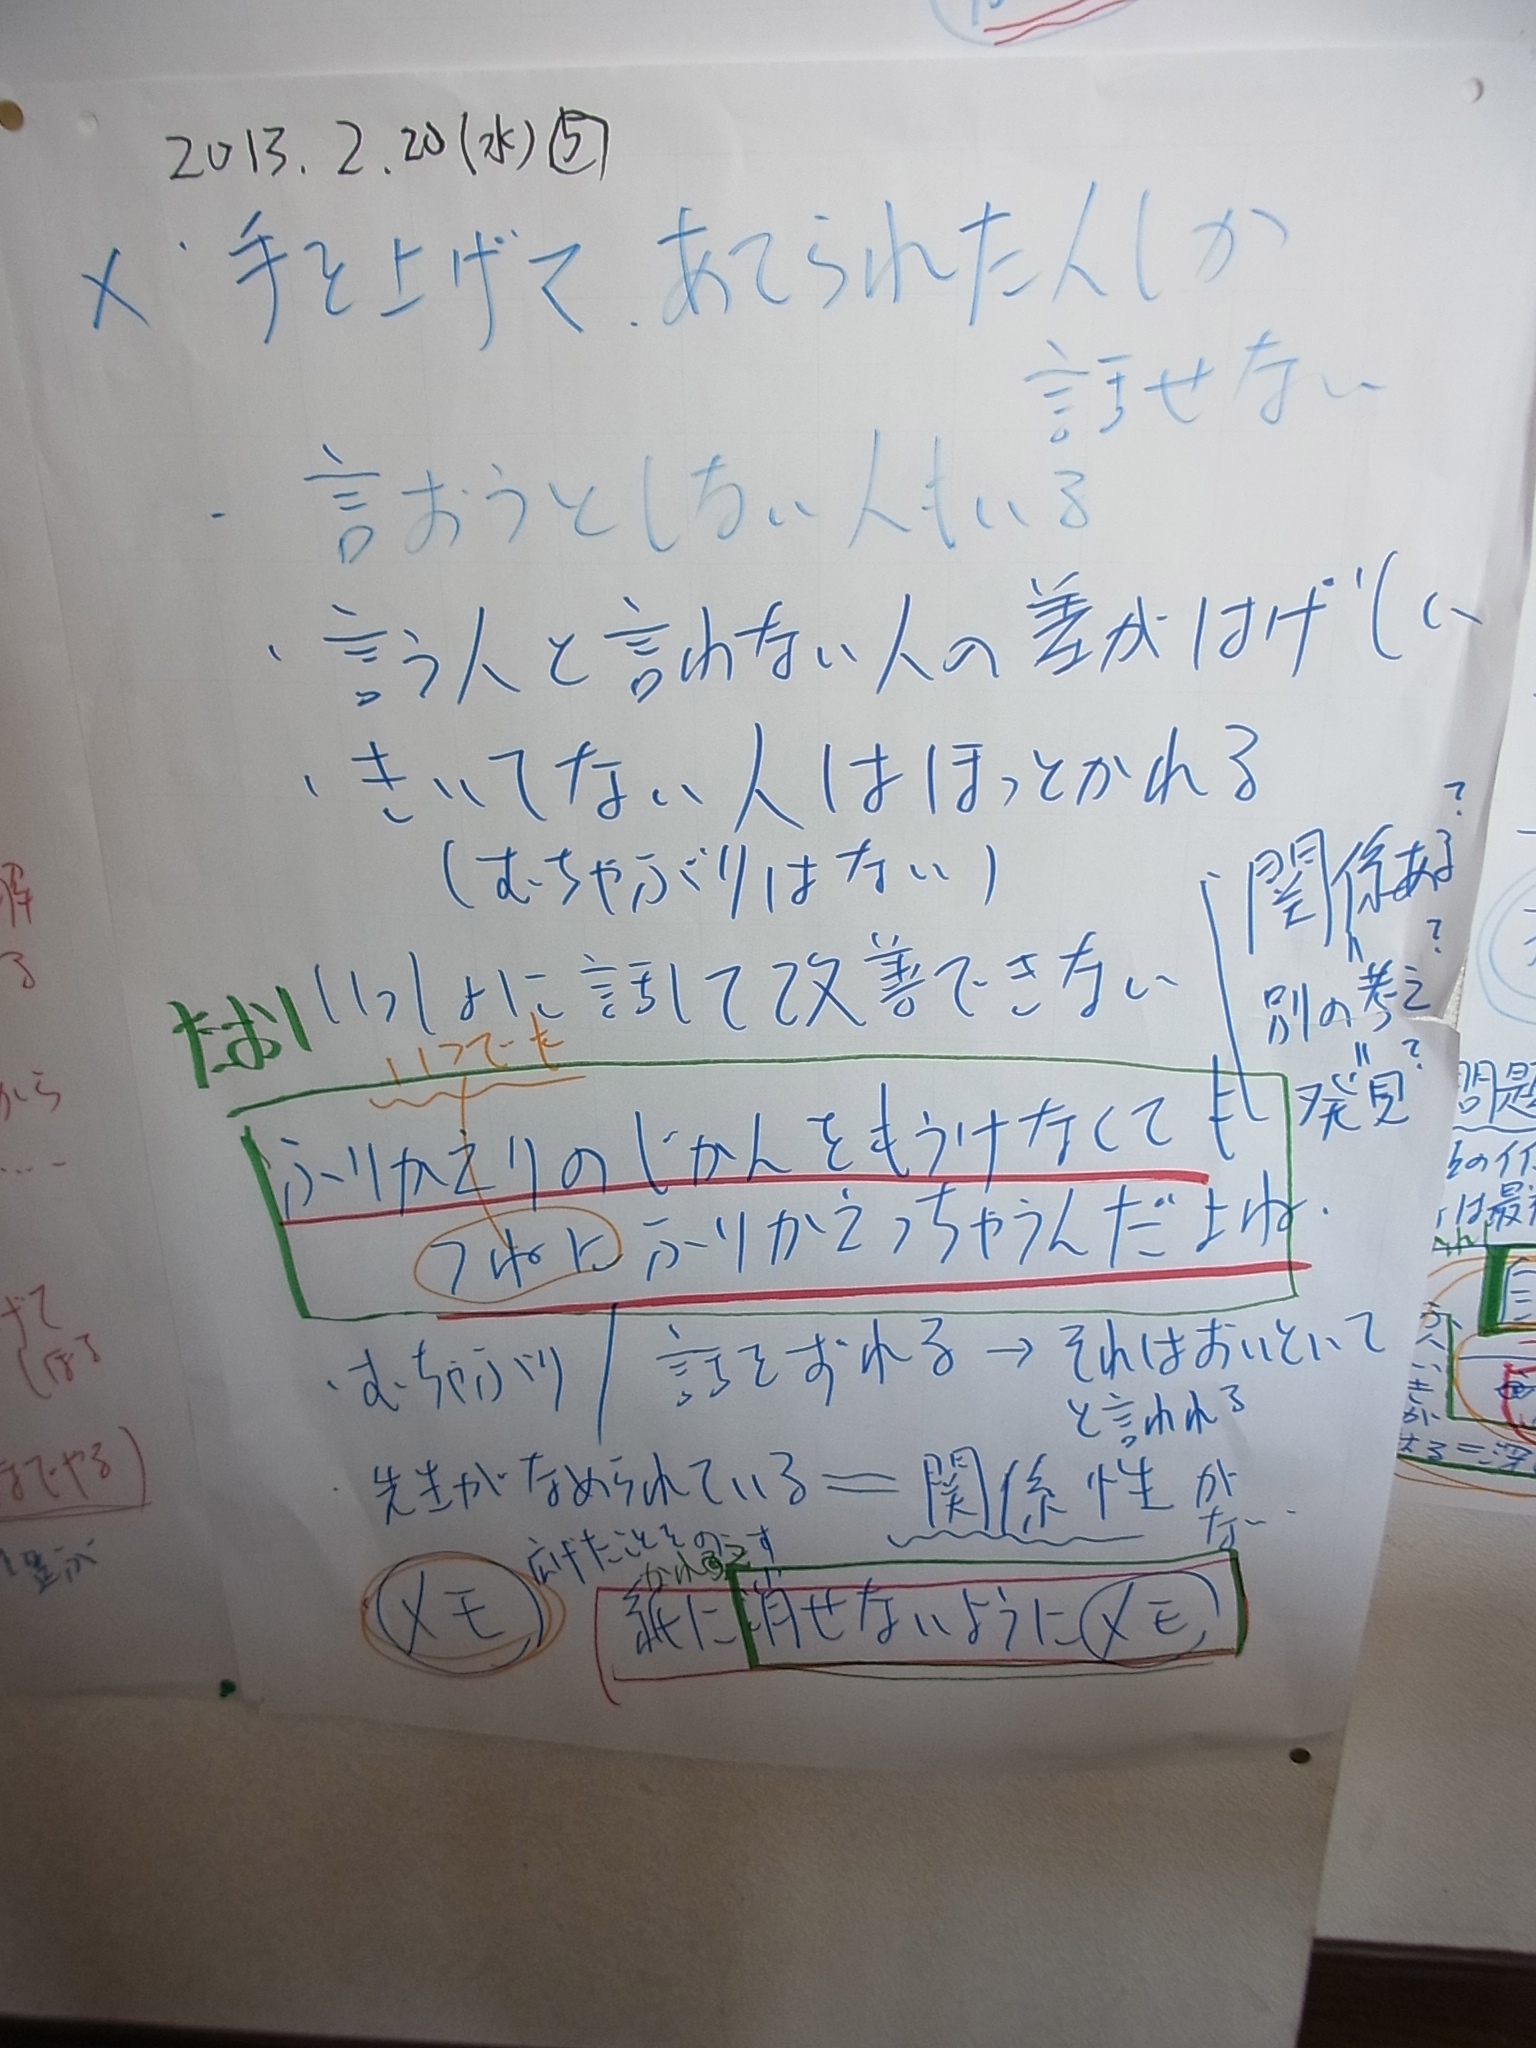 2013.2.20(水)⑤
× ・手を上げて、あてられた人しか
話せない
・言おうとしない人もいる
・言う人と言れない人の差がはげしい
・きいてない人はほっとかれる
(むちゃぶりはない)
いっしょに話して改善できない
関係ある?
〃
別の考え?
〃
発見?
たおり
いつでも
ふりかえりのじかんをもうけなくても
つねにふりかえっちゃうんだよね.
・むちゃぶり/話をずれる→それはおいといて
と言われる
・先生がなめられている=関係性が
な…
広げたことをのこす
メモ
紙に消せないようにメモ
解
る
から
……
げて
しぼる
までやる)
問題